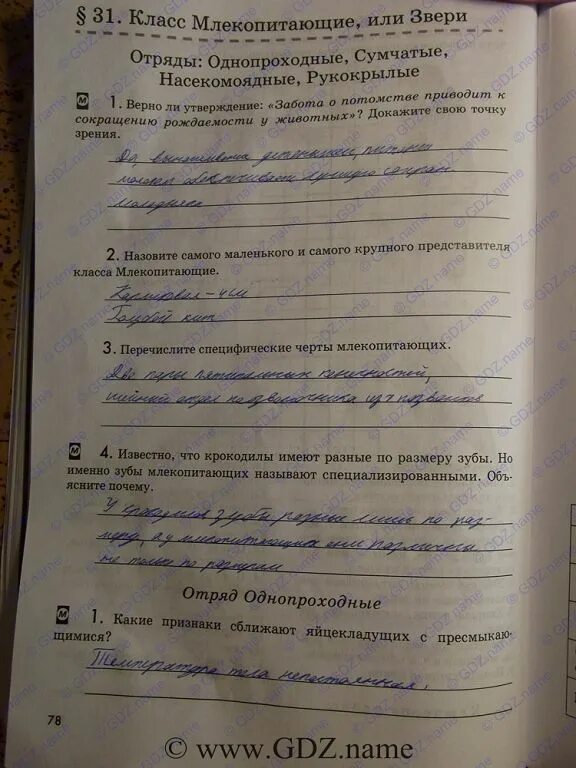 § 31. Класс Млекопитающие, или Звери
Отряды: Однопроходные, Сумчатые,
Насекомоядные, Рукокрылые
М 1. Верно ли утверждение: «Забота о потомстве приводит к
сокращению рождаемости у животных»? Докажите свою точку
зрения.
Да, вынашивание детенышей, питание
молоком обеспечивает лучшую сохран
молодняка
2. Назовите самого маленького и самого крупного представителя
класса Млекопитающие.
- 4 см
Голубой кит
3. Перечислите специфические черты млекопитающих.
Две пары пятипалых конечностей,
шейный отдел позвоночника из 7 позвонков
М 4. Известно, что крокодилы имеют разные по размеру зубы. Но
именно зубы млекопитающих называют специализированными. Объ-
ясните почему.
У крокодилов зубы разные лишь по раз-
меру, а у млекопитающих они различны
не только по размерам
Отряд Однопроходные
М 1. Какие признаки сближают яйцекладущих с пресмыкаю-
щимися?
Температура тела непостоянная.
78
© www.GDZ.name